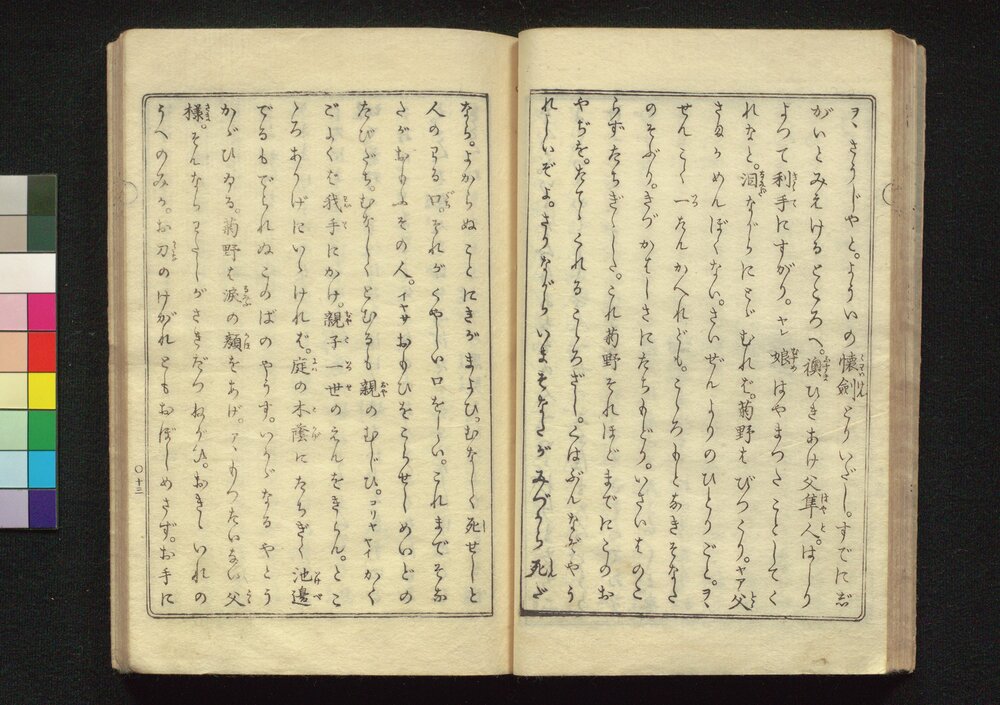 ヲヽさうじやと。よういの懐劍とりいだし。すでにじ
がいとみえけるところへ。襖ひきあけ父隼人。はしり
よつて利手にすがり。ヤレ娘はやまつたことしてく
れなと。泪ながらにとゞむれば。菊野はびつくり。ヤア父
さまかめんぼくない。さいぜんよりのひとりごと。ヲヽ
せんこく一たんかへれども。こゝろもとなきそなた
のそぶり。きづかはしさにたちもどり。いさいはのこ
らずたちぎゝした。これ菊野それほどまでにこのお
やぢを。たてゝくれるこゝろざし。こはぶんなぞやう
れしいぞよ。さりながらいまそなたがみづから死ば
なら。よからぬことにきがまよひ。むなしく死せしと
人のヮる口。それがくやしい口をしい。これまでそな
たがおもふその人。イヤサおもひをこらせしめいどの
たびだち。むなしくとむるも親のむじひ。コリヤヤイかく
ごよくば我手にかけ。親子一世のえんをきらん。とこ
ろありげにいゝければ。庭の木蔭にたちぎく池邊
でるもでられぬこのばのやうす。いかゞなるやとう
かゞひゐる。菊野は涙の顏をあげ。アヽもつたいない父
樣。そんならワたしがさきだつねがひ。おきゝいれの
うへのみか。お刀のけがれともおぼしめさず。お手に
〇十三